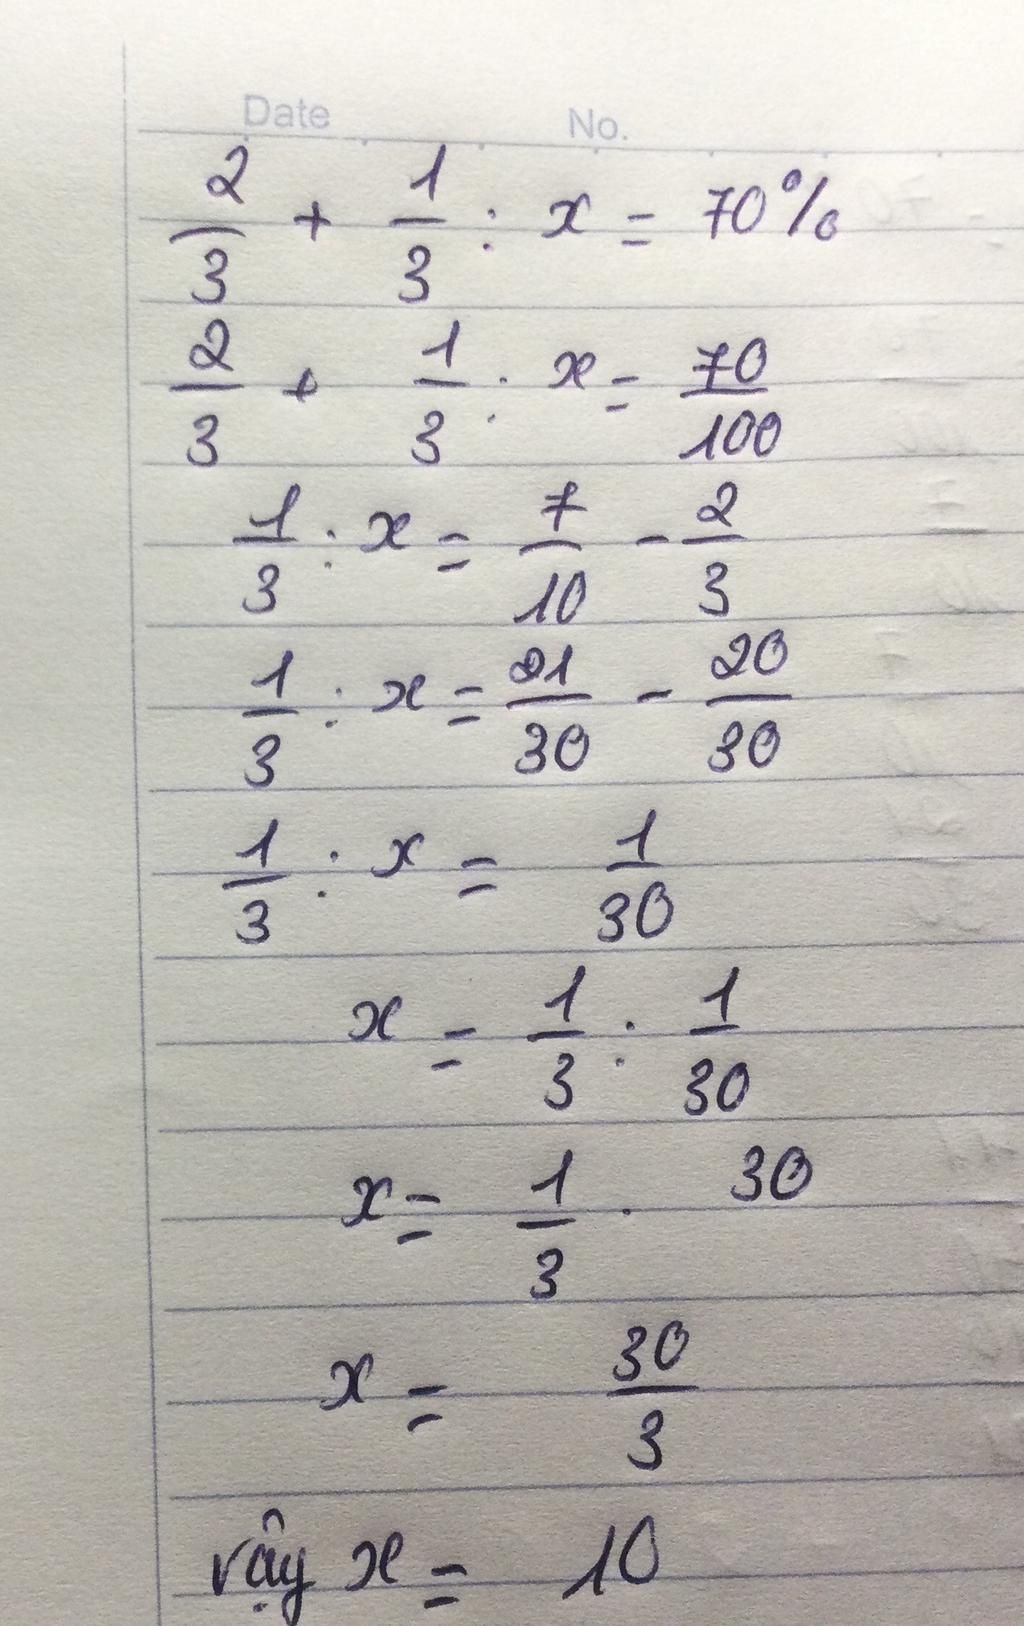 Date No.
2/3 + 1/3 : x = 70%
2/3 + 1/3 : x = 70/100
1/3 : x = 7/10 - 2/3
1/3 : x = 21/30 - 20/30
1/3 : x = 1/30
x = 1/3 : 1/30
x = 1/3 . 30
x = 30/3
vậy x = 10